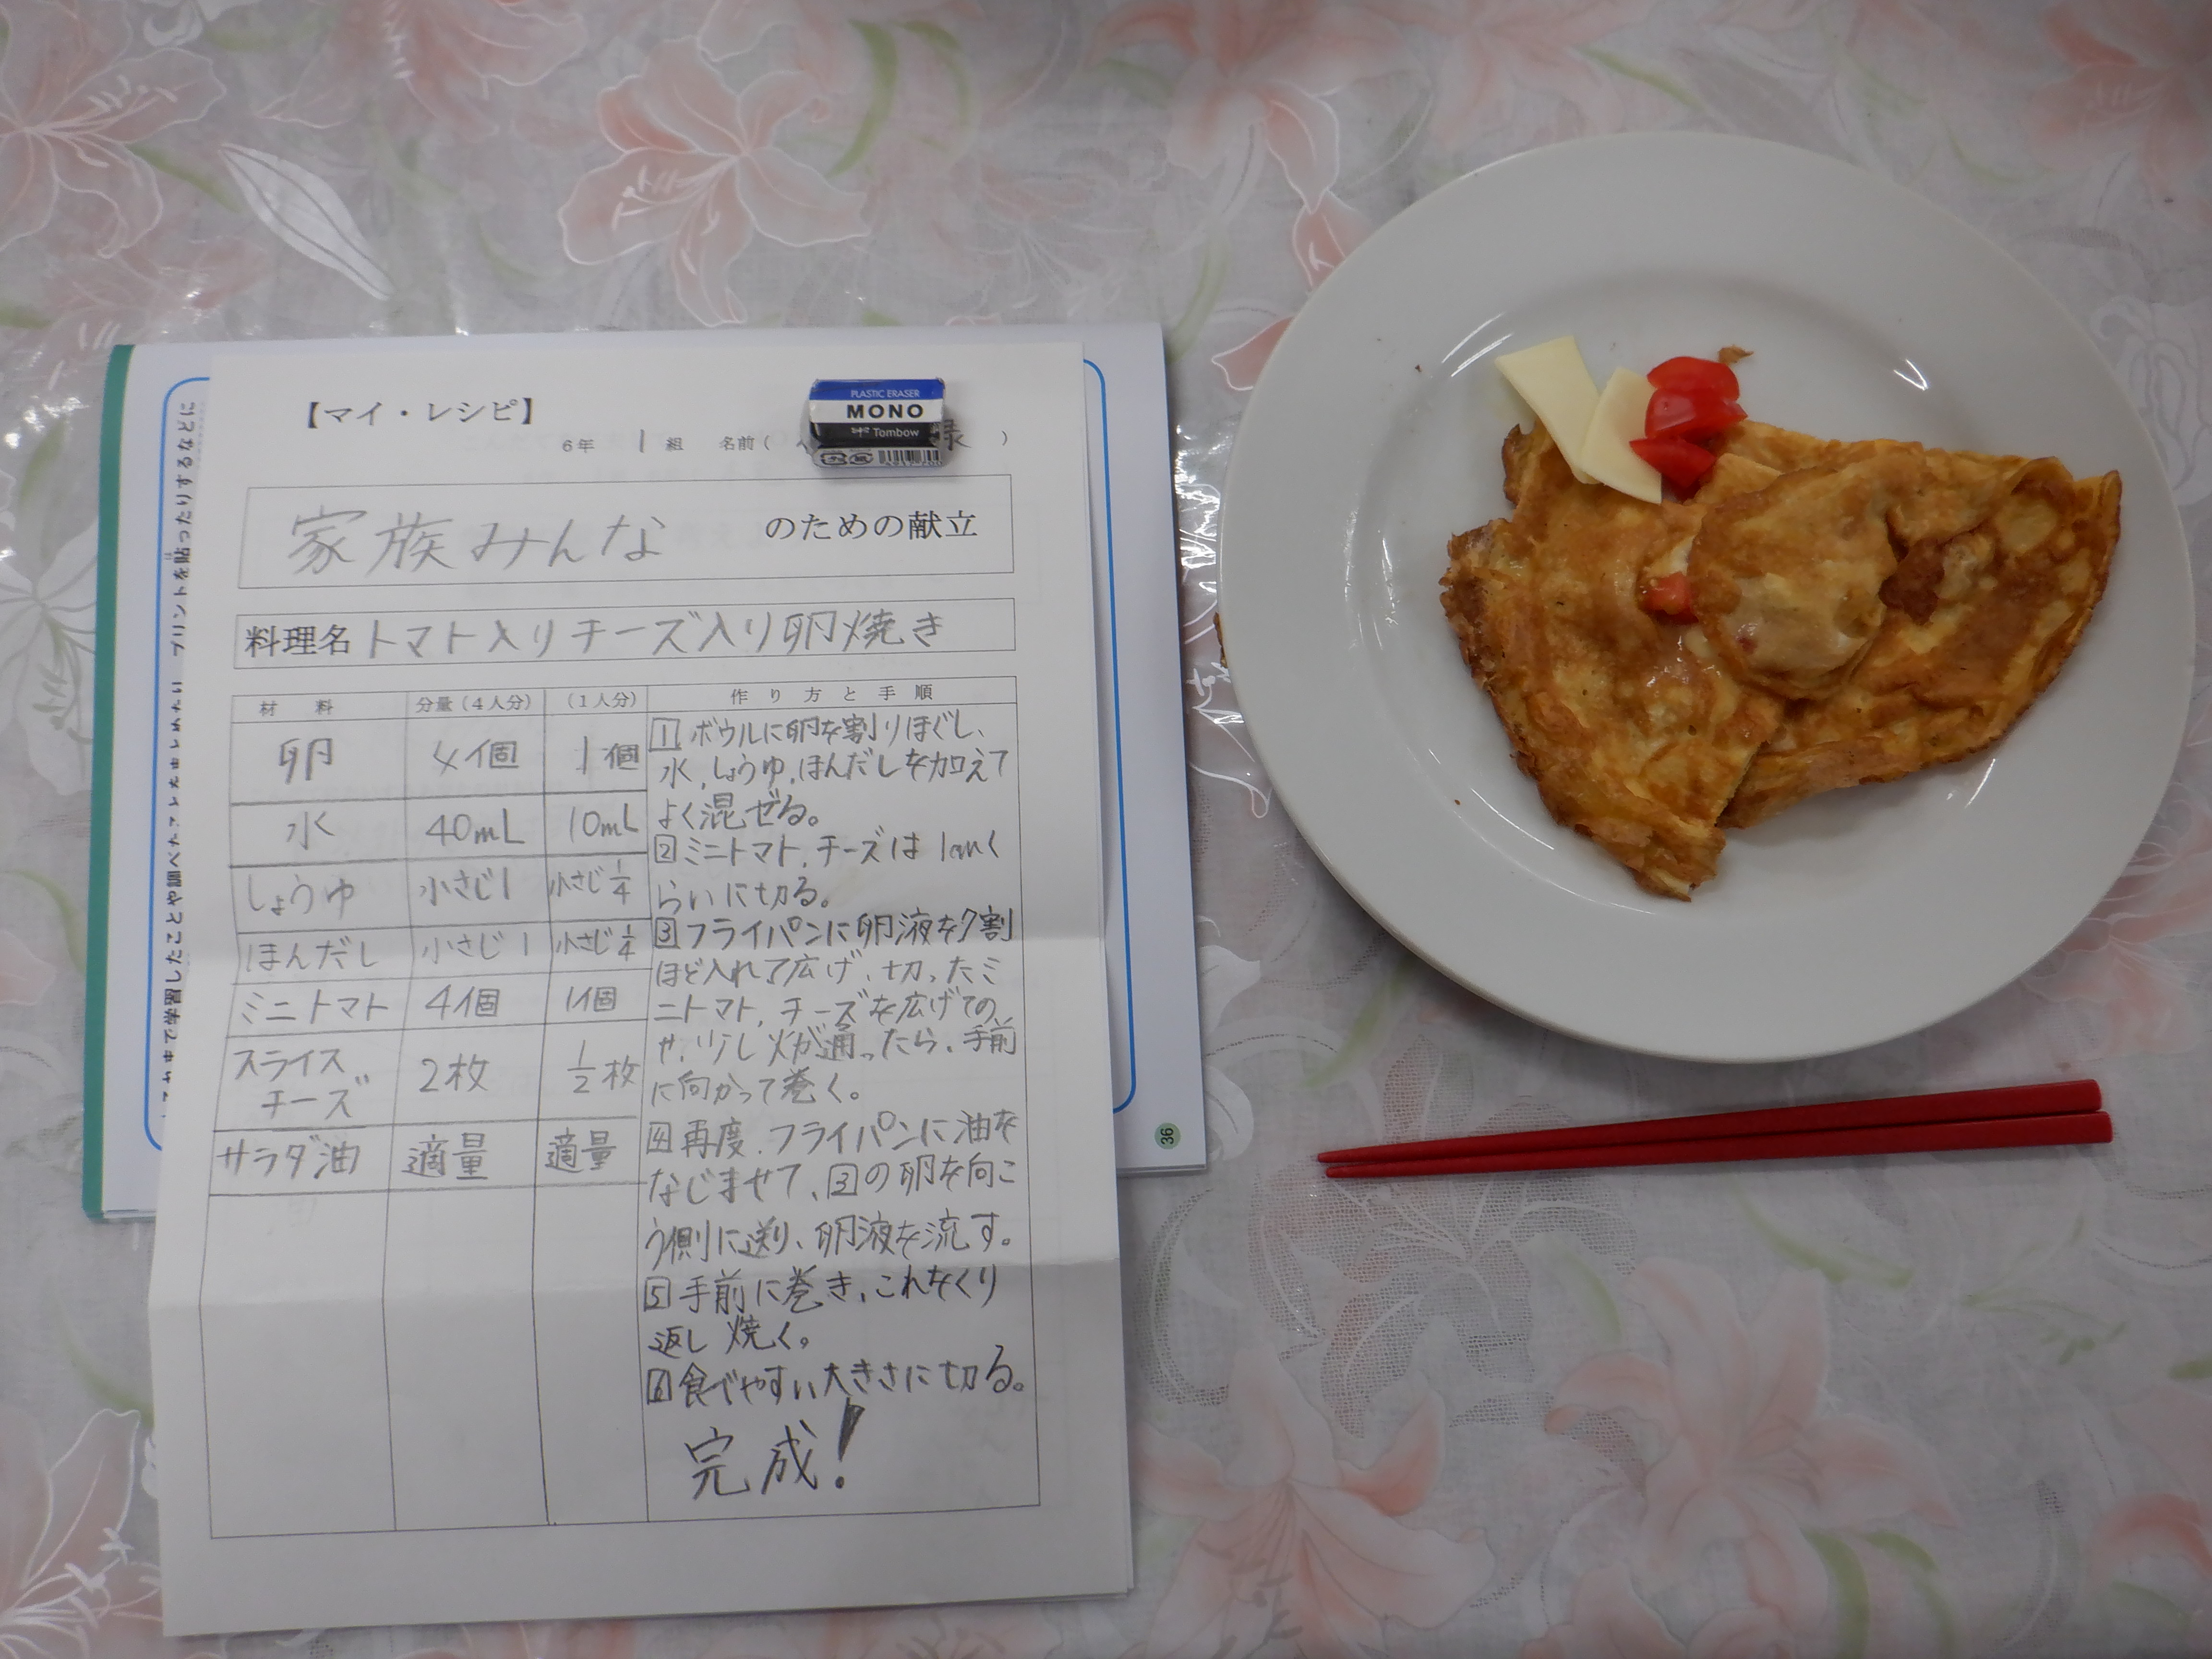 【マイ・レシピ】
6年 1 組 名前( 録 )
PLASTIC ERASER
MONO
Tombow
家族みんな のための献立
料理名 トマト入りチーズ入り卵焼き
材 料 分量(4人分) (1人分) 作り方と手順
卵 4個 1個
水 40mL 10mL
しょうゆ 小さじ1 小さじ1/4
ほんだし 小さじ1 小さじ1/4
ミニトマト 4個 1個
スライス
チーズ 2枚 1/2枚
サラダ油 適量 適量
1 ボウルに卵を割りほぐし、
水、しょうゆ、ほんだしを加えて
よく混ぜる。
2 ミニトマト、チーズは1cmく
らいに切る。
3 フライパンに卵液を7割
ほど入れて広げ、切ったミ
ニトマト、チーズを広げての
せ、少し火が通ったら、手前
に向かって巻く。
4 再度、フライパンに油を
なじませて、3の卵を向こ
う側に送り、卵液を流す。
5 手前に巻き、これをくり
返し焼く。
6 食べやすい大きさに切る。
完成!
プリントを貼ったりするなどに
36